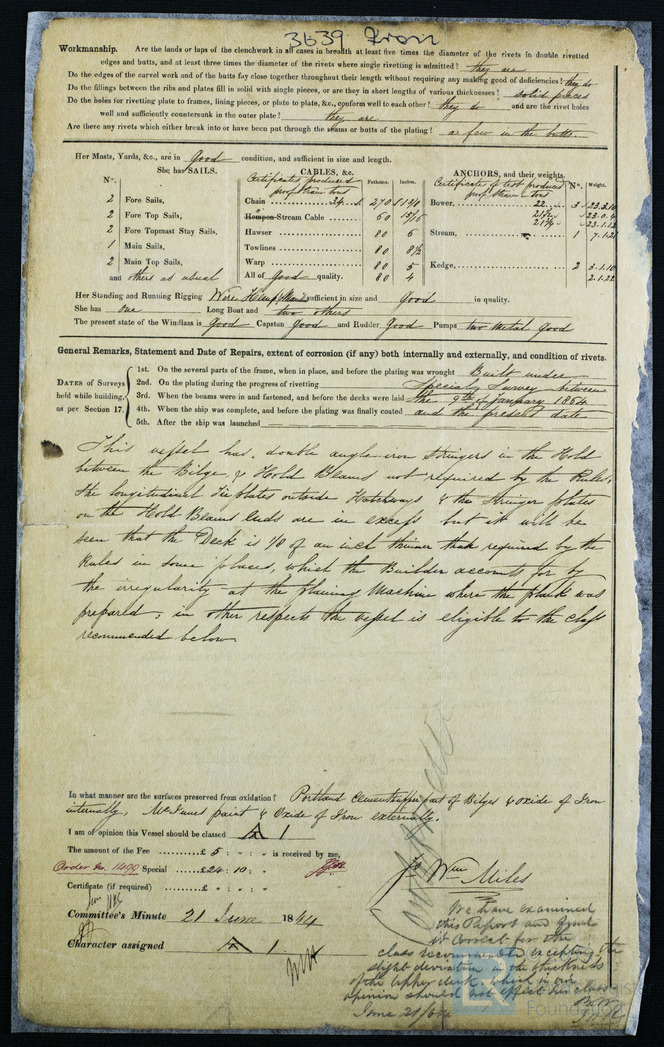 3639 Iron
Workmanship. Are the lands or laps of the clenchwork in all cases in breadth at least five times the diameter of the rivets in double rivetted
edges and butts, and at least three times the diameter of the rivets where single rivetting is admitted? they are
Do the edges of the carvel work and of the butts fay close together throughout their length without requiring any making good of deficiencies? they do
Do the fillings between the ribs and plates fill in solid with single pieces, or are they in short lengths of various thicknesses? solid pieces
Do the holes for rivetting plate to frames, lining pieces, or plate to plate, &c., conform well to each other? they do and are the rivet holes
well and sufficiently countersunk in the outer plate? they are
Are there any rivets which either break into or have been put through the seams or butts of the plating? a few in the butts
Her Masts, Yards, &c., are in Good condition, and sufficient in size and length.
She has SAILS.
N°.
2 Fore Sails,
2 Fore Top Sails,
2 Fore Topmast Stay Sails,
1 Main Sails,
2 Main Top Sails,
and others as usual
CABLES, &c.
Certificates produced Fathoms. Inches.
Chain 270
Hempen Stream Cable 60 15/16
Hawser 80 6
Towlines 80 8½
Warp 80 5
All of Good quality. 80 4
ANCHORS, and their weights.
Certificates of test produced N°. Weight.
Bower, 22 3
Stream, 1
Kedge, 2 3.1.10
2.1.22
Her Standing and Running Rigging Wire Hemp & Manila sufficient in size and Good in quality.
She has one Long Boat and two others
The present state of the Windlass is Good Capstan Good and Rudder Good Pumps two metal Good
General Remarks, Statement and Date of Repairs, extent of corrosion (if any) both internally and externally, and condition of rivets.
DATES of Surveys held while building, as per Section 17.
1st. On the several parts of the frame, when in place, and before the plating was wrought Built under
2nd. On the plating during the progress of rivetting Special Survey between
3rd. When the beams were in and fastened, and before the decks were laid the 9th of January 1864
4th. When the ship was complete, and before the plating was finally coated and the present date
5th. After the ship was launched
This vessel has double angle iron Stringers in the Hold
between the Bilge & Hold Beams not required by the Rules,
the longitudinal Tieplates outside Hatchways & the Stringer plates
on the Hold Beams Ends are in excess but it will be
seen that the Deck is 1/0 of an inch thinner than required by the
Rules in some places, which the Builder accounts for by
the irregularity at the planing Machine where the plank was
prepared; in other respects the vessel is eligible to the class
recommended below
In what manner are the surfaces preserved from oxidation? Portland Cement upper part of Bilges & Oxide of Iron
internally, McInnes paint & Oxide of Iron externally.
I am of opinion this Vessel should be classed A 1
The amount of the Fee £ 5 : - : - is received by me,
Order No. 1499 Special £24 : 10 : -
Certificate (if required) £ - : - : -
Jo Wm Miles
Committee's Minute 21 June 1864
Character assigned A 1
We have examined
this Report and find
it correct for the
class recommended excepting the
slight deviation in the thickness
of the upper deck which in our
opinion should not affect her class
June 21/64
Register
Foundation